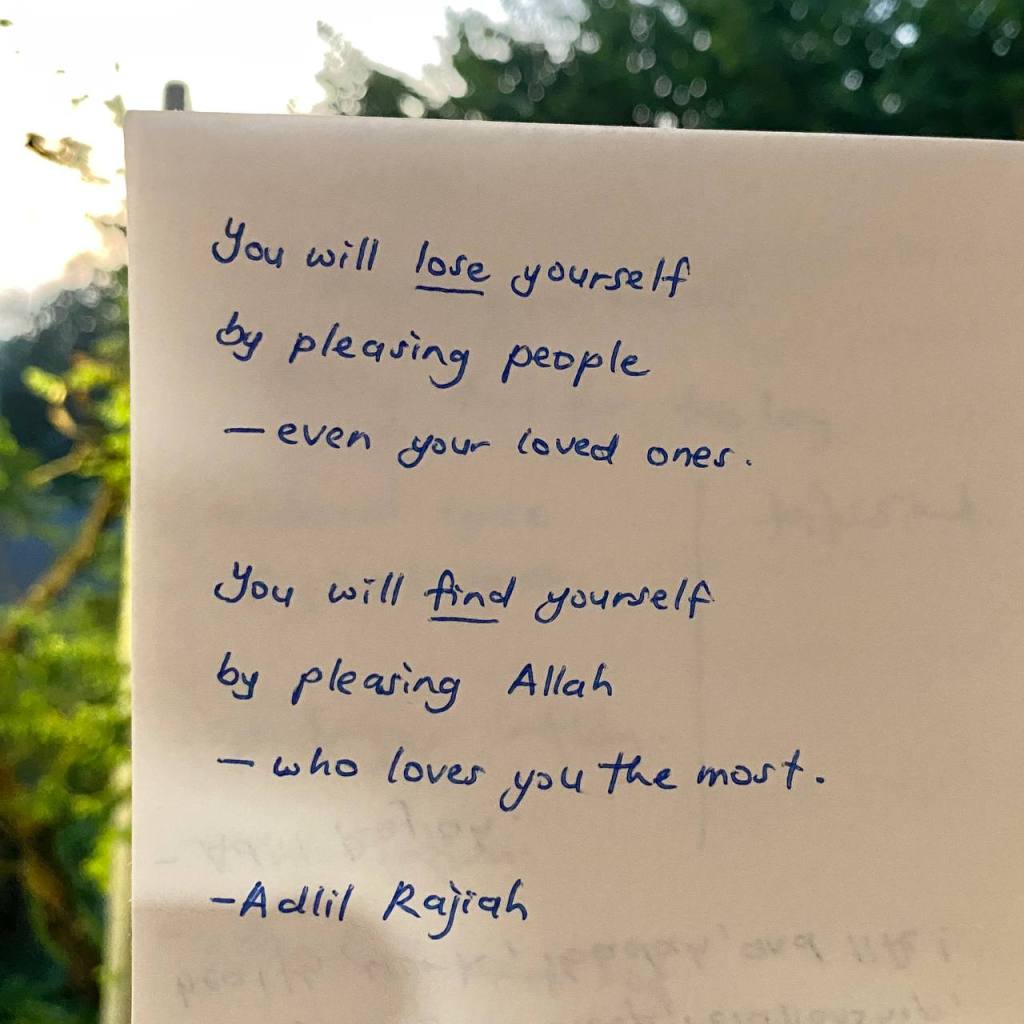 You will lose yourself
by pleasing people
—even your loved ones.
You will find yourself
by pleasing Allah
—who loves you the most.
-Adlil Rajiah